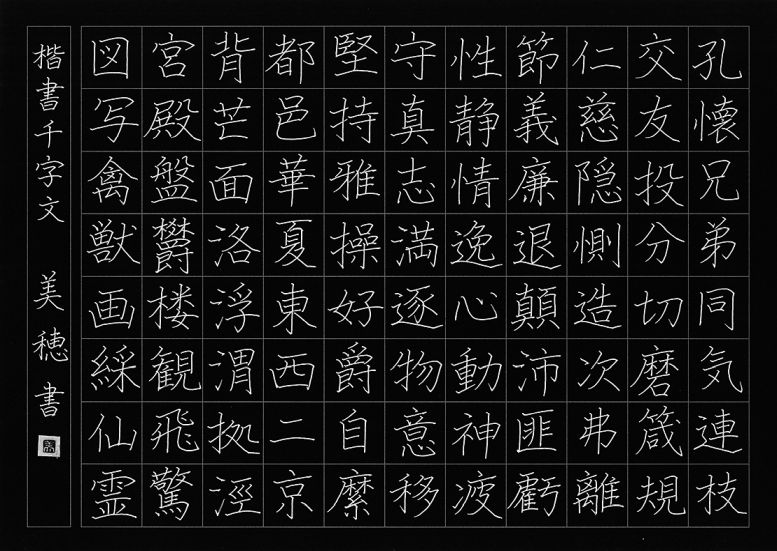 孔懐兄弟同気連枝
交友投分切磨箴規
仁慈隠惻造次弗離
節義廉退顛沛匪虧
性静情逸心動神疲
守真志満逐物意移
堅持雅操好爵自縻
都邑華夏東西二京
背芒面洛浮渭拠涇
宮殿盤鬱楼観飛驚
図写禽獣画綵仙霊
楷書千字文 美穂書